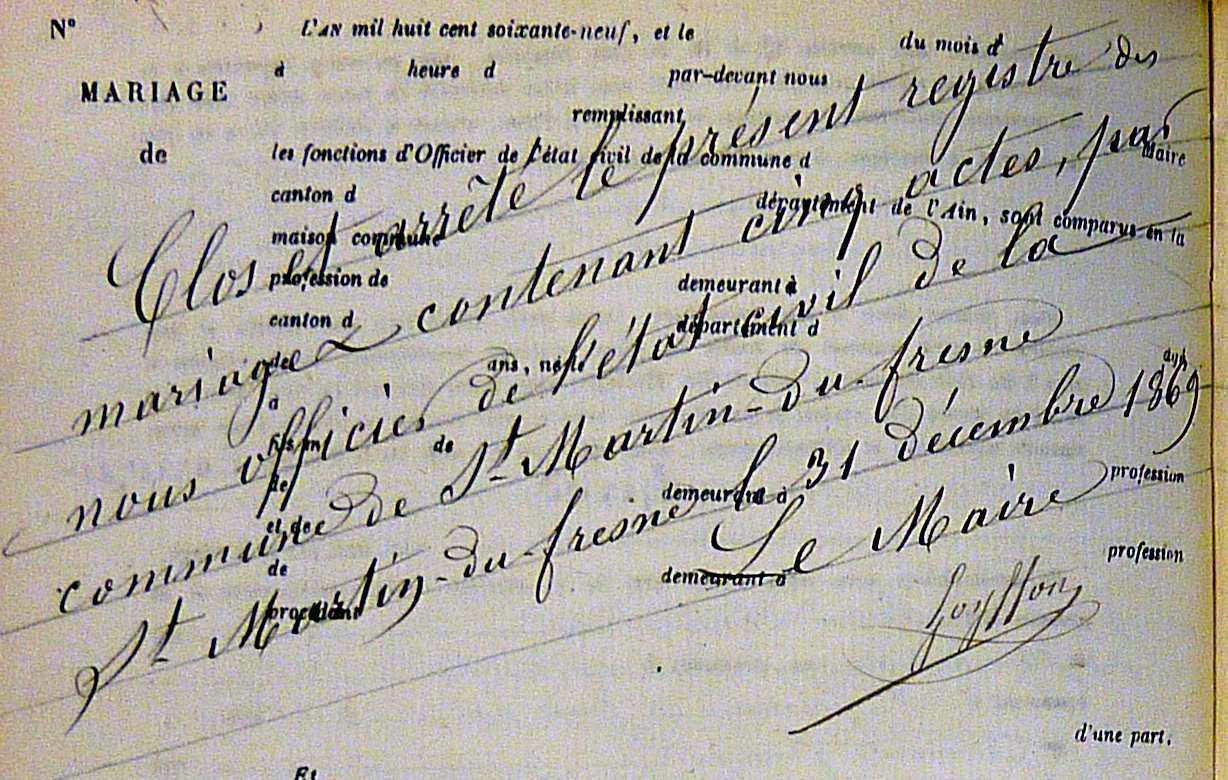 N° L'AN mil huit cent soixante-neuf, et le du mois d
à heure d par-devant nous
MARIAGE
remplissant
de les fonctions d'Officier de l'état civil de la commune d
canton d département de l'Ain, sont comparus en la
maison commune
profession de demeurant à
canton d département d
de ans, né le
à
fils m de
de demeurant à profession
et de
de demeurant à profession
procédant
d'une part,
Et
Clos et arrêté le présent registre des
mariages contenant cinq actes, par
nous officier de l'état civil de la
commune de St Martin-du-fresne
St Martin-du-fresne le 31 décembre 1869
Le Maire